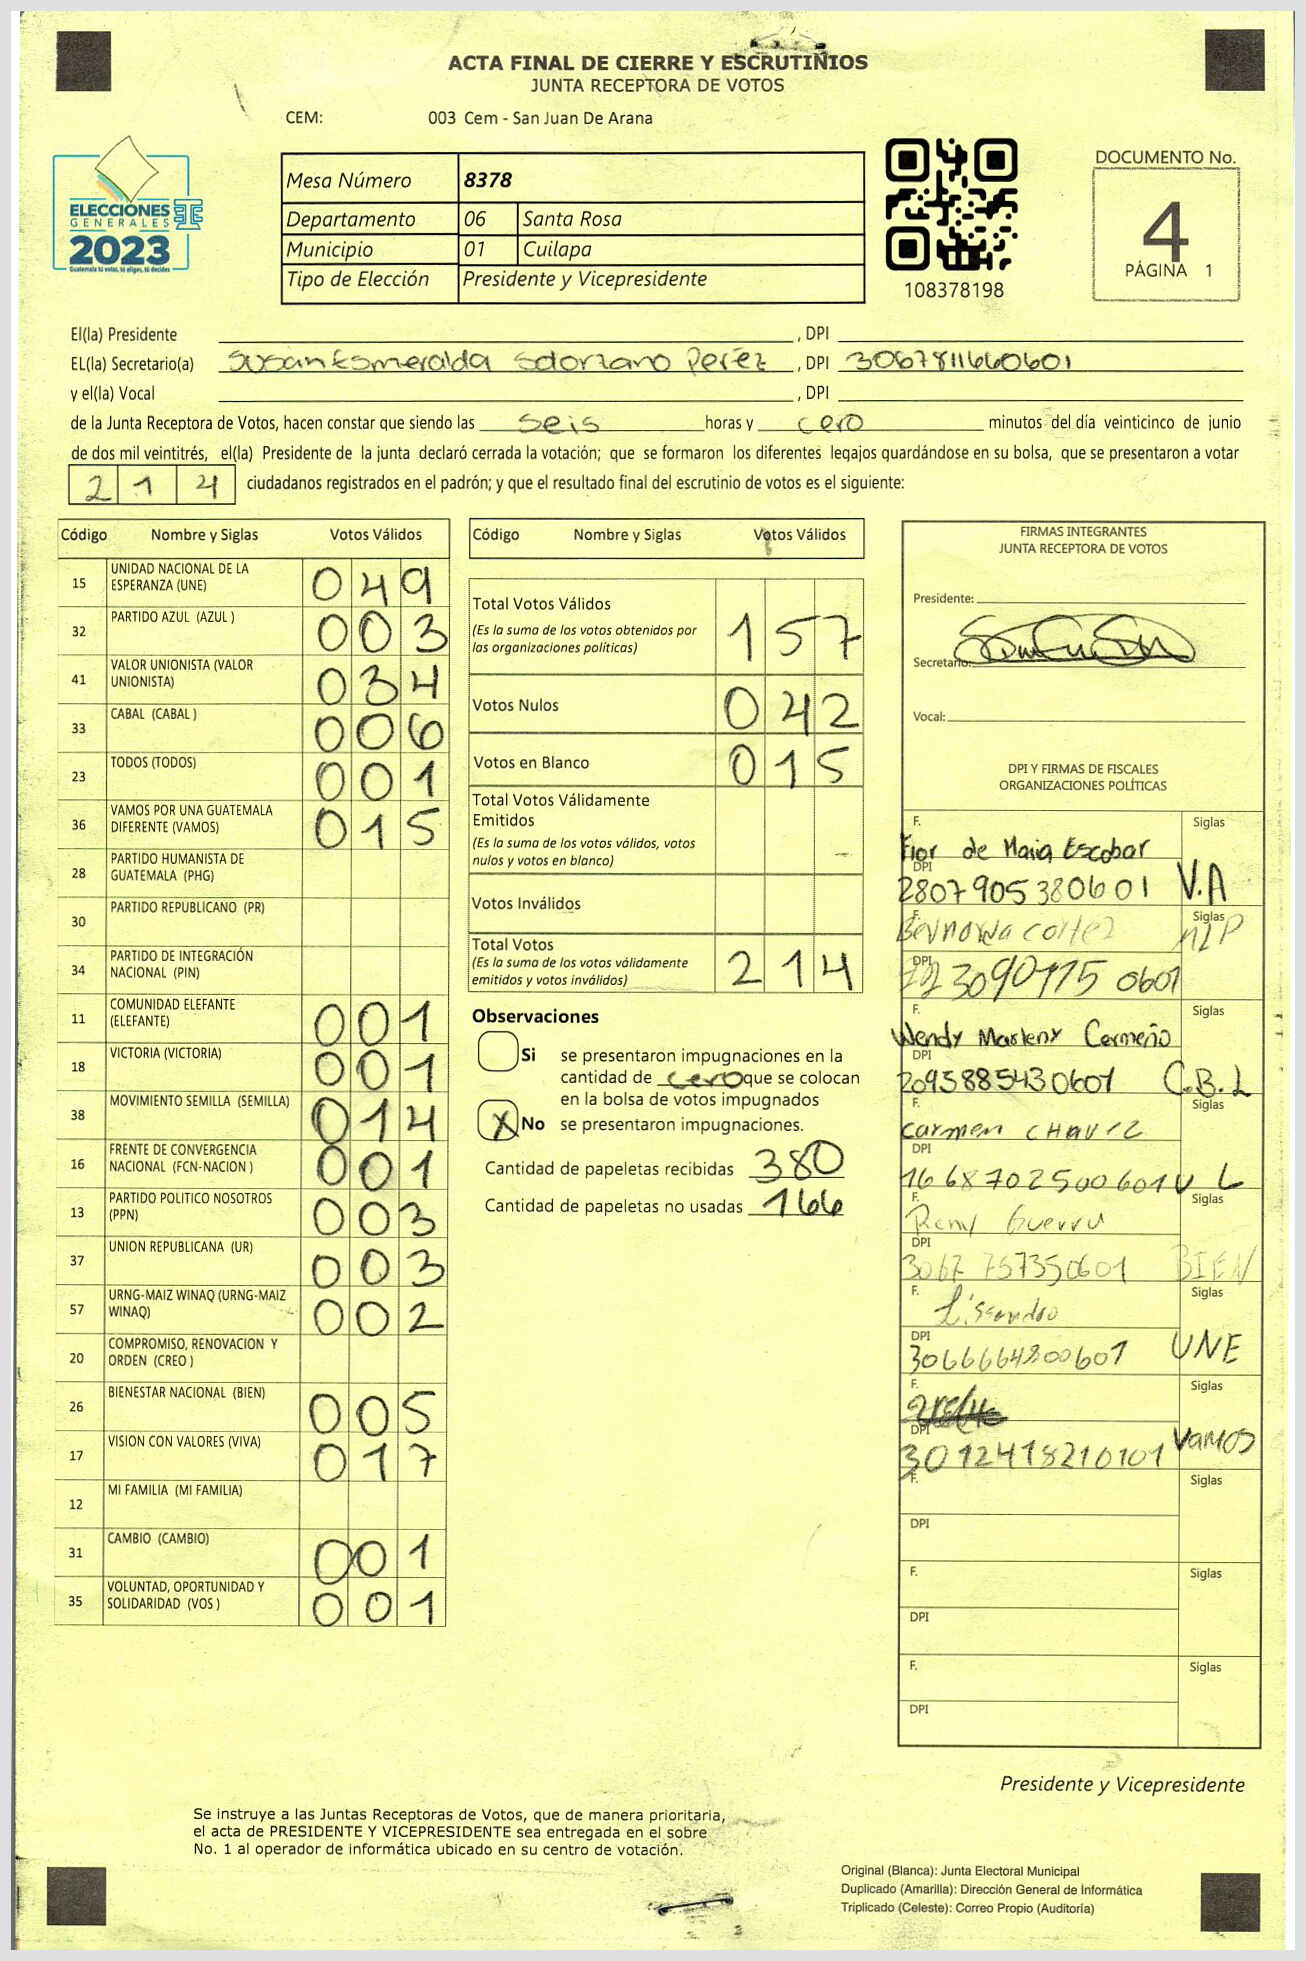 ACTA FINAL DE CIERRE Y ESCRUTINIOS
JUNTA RECEPTORA DE VOTOS
CEM: 003 Cem - San Juan De Arana
ELECCIONES
GENERALES
2023
Guatemala tú votas, tú eliges, tú decides
Mesa Número 8378
Departamento 06 Santa Rosa
Municipio 01 Cuilapa
Tipo de Elección Presidente y Vicepresidente
108378198
DOCUMENTO No.
4
PÁGINA 1
El(la) Presidente , DPI
EL(la) Secretario(a) Susan Esmeralda Solorzano Perez , DPI 3067811660601
y el(la) Vocal , DPI
de la Junta Receptora de Votos, hacen constar que siendo las seis horas y cero minutos del día veinticinco de junio
de dos mil veintitrés, el(la) Presidente de la junta declaró cerrada la votación; que se formaron los diferentes legajos quardándose en su bolsa, que se presentaron a votar
2 1 4 ciudadanos registrados en el padrón; y que el resultado final del escrutinio de votos es el siguiente:
Código Nombre y Siglas Votos Válidos
15 UNIDAD NACIONAL DE LA ESPERANZA (UNE) 0 4 9
32 PARTIDO AZUL (AZUL ) 0 0 3
41 VALOR UNIONISTA (VALOR UNIONISTA) 0 3 4
33 CABAL (CABAL ) 0 0 6
23 TODOS (TODOS) 0 0 1
36 VAMOS POR UNA GUATEMALA DIFERENTE (VAMOS) 0 1 5
28 PARTIDO HUMANISTA DE GUATEMALA (PHG)
30 PARTIDO REPUBLICANO (PR)
34 PARTIDO DE INTEGRACIÓN NACIONAL (PIN)
11 COMUNIDAD ELEFANTE (ELEFANTE) 0 0 1
18 VICTORIA (VICTORIA) 0 0 1
38 MOVIMIENTO SEMILLA (SEMILLA) 0 1 4
16 FRENTE DE CONVERGENCIA NACIONAL (FCN-NACION ) 0 0 1
13 PARTIDO POLITICO NOSOTROS (PPN) 0 0 3
37 UNION REPUBLICANA (UR) 0 0 3
57 URNG-MAIZ WINAQ (URNG-MAIZ WINAQ) 0 0 2
20 COMPROMISO, RENOVACION Y ORDEN (CREO )
26 BIENESTAR NACIONAL (BIEN) 0 0 5
17 VISION CON VALORES (VIVA) 0 1 7
12 MI FAMILIA (MI FAMILIA)
31 CAMBIO (CAMBIO) 0 0 1
35 VOLUNTAD, OPORTUNIDAD Y SOLIDARIDAD (VOS ) 0 0 1
Código Nombre y Siglas Votos Válidos
Total Votos Válidos 1 5 7
(Es la suma de los votos obtenidos por
las organizaciones políticas)
Votos Nulos 0 4 2
Votos en Blanco 0 1 5
Total Votos Válidamente
Emitidos
(Es la suma de los votos válidos, votos
nulos y votos en blanco)
Votos Inválidos
Total Votos 2 1 4
(Es la suma de los votos válidamente
emitidos y votos inválidos)
Observaciones
Si se presentaron impugnaciones en la
cantidad de cero que se colocan
en la bolsa de votos impugnados
X No se presentaron impugnaciones.
Cantidad de papeletas recibidas 380
Cantidad de papeletas no usadas 166
FIRMAS INTEGRANTES
JUNTA RECEPTORA DE VOTOS
Presidente:
Secretario:
Vocal:
DPI Y FIRMAS DE FISCALES
ORGANIZACIONES POLÍTICAS
F. Siglas
Flor de Maria Escobar
DPI
2807905380601 V.A
F. Siglas
Cortez
DPI
F. Siglas
Wendy Marleny Cermeño
DPI
2095885430601 C.B.L
F. Siglas
Carmen CHavez
DPI
1668702500601 V L
F. Siglas
Guerra
DPI
3067757350601 BIEN
F. Siglas
Lissandro
DPI
3066664800601 UNE
F. Siglas
DPI
3012418210101 VAMOS
F. Siglas
DPI
F. Siglas
DPI
F. Siglas
DPI
Presidente y Vicepresidente
Se instruye a las Juntas Receptoras de Votos, que de manera prioritaria,
el acta de PRESIDENTE Y VICEPRESIDENTE sea entregada en el sobre
No. 1 al operador de informática ubicado en su centro de votación.
Original (Blanca): Junta Electoral Municipal
Duplicado (Amarilla): Dirección General de Informática
Triplicado (Celeste): Correo Propio (Auditoría)